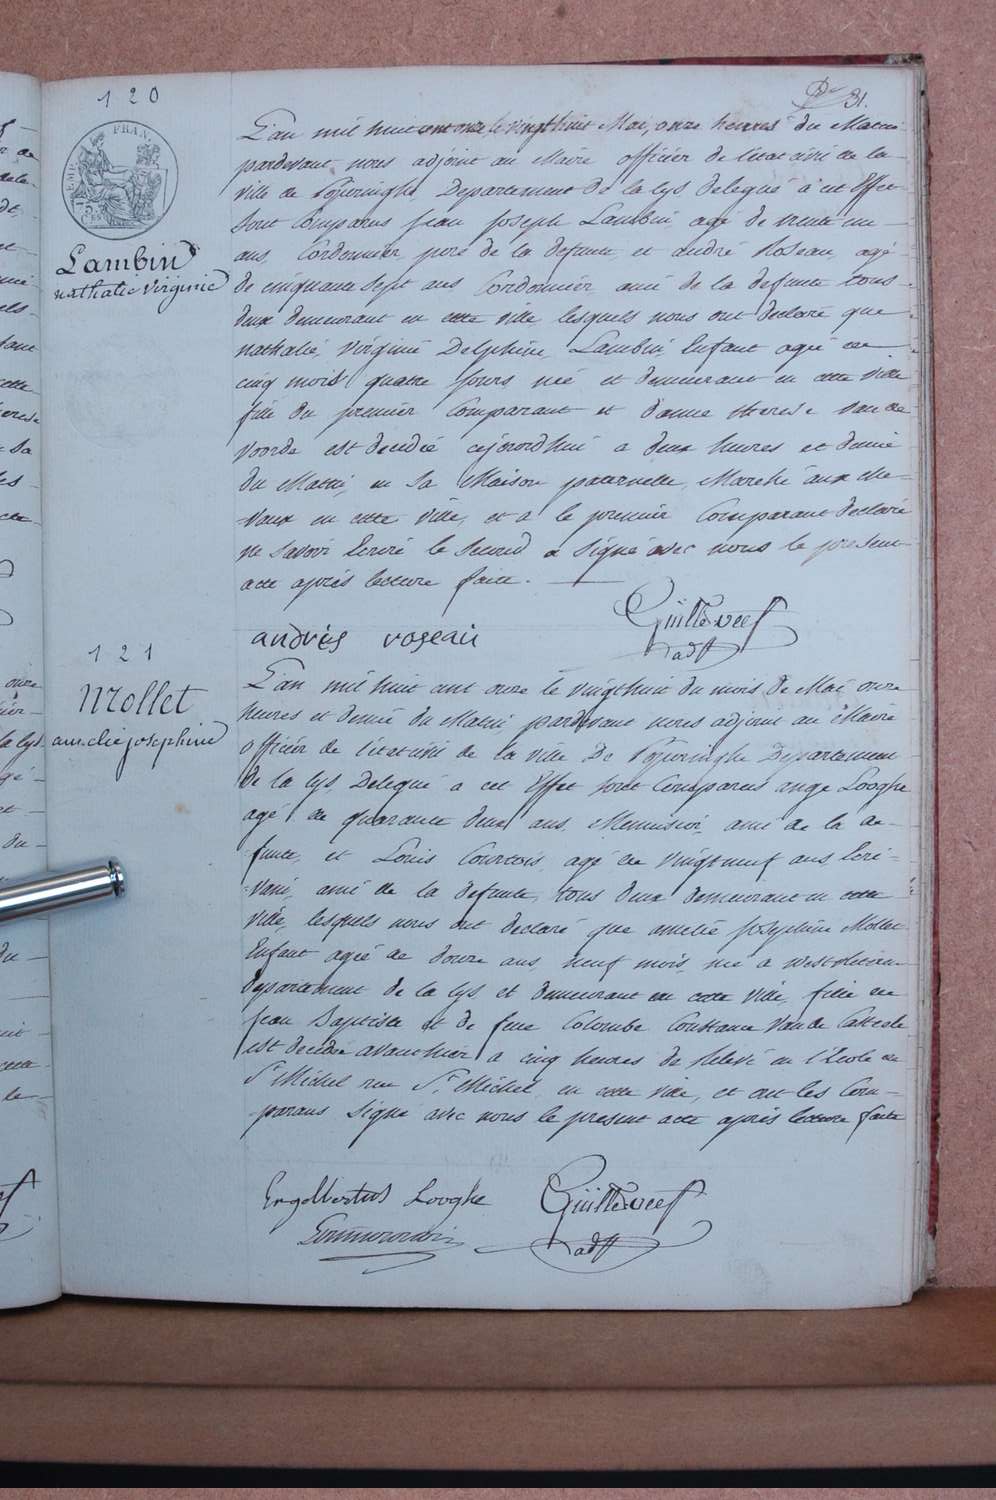 31.
120
EMP. FRAN.
Lambin
nathalie virginie
L'an mil huit cent onze le vingthuit Mai, onze heures du Matin
pardevant nous adjoint au Maire officier de l'etat civil de la
ville de Poperinghe Departement de la lys delegué à cet Effet
sont Comparus jean joseph Lambin agé de trente un
ans Cordonnier, pere de la defunte et andré Roseau, agé
de cinquante sept ans Cordonnier ami de la defunte tous
deux demeurant en cette ville lesquels nous ont declaré que
nathalie, virginie Delphine Lambin Enfant agé de
cinq mois quatre jours né et demeurant en cette ville
fille du premier Comparant et d'anne therese van de
voorde est decedée cejourdhui a deux heures et demie
du Matin, en sa Maison paternelle, Marché aux che-
-vaux en cette ville, et a le premier Comparant declaré
ne savoir Ecrire le second a signé avec nous le present
acte après lecture faite.
andriés roseau
Guilleweef
adjt
121
Mollet
amelie josephine
L'an mil huit cent onze le vingthuit du mois de Mai onze
heures et demie du Matin, pardevant nous adjoint au Maire
officier de l'etat civil de la ville De Poperinghe Departement
de la lys Delegué a cet Effet sont Comparus ange Looghe
agé de quarante deux ans, Menuisier, ami de la de-
funte, et Louis Courtois agé de vingt neuf ans Ecri-
-vain, ami de la defunte, tous deux demeurant en cette
ville, lesquels nous ont declaré que amelie josephine Mollet
Enfant agé de douze ans, neuf mois, né a westvleteren
departement de la lys et demeurant en cette ville, fille de
jean Baptiste et de feue Colombe Constance Van de Casteele
est decedée avant hier a cinq heures de relevé en l'Ecole de
St Michel rue St Michel, en cette ville, et ont les Com-
-parans signe avec nous le present acte après lecture faite
Engelbertus Looghe
Guilleweef
adjt